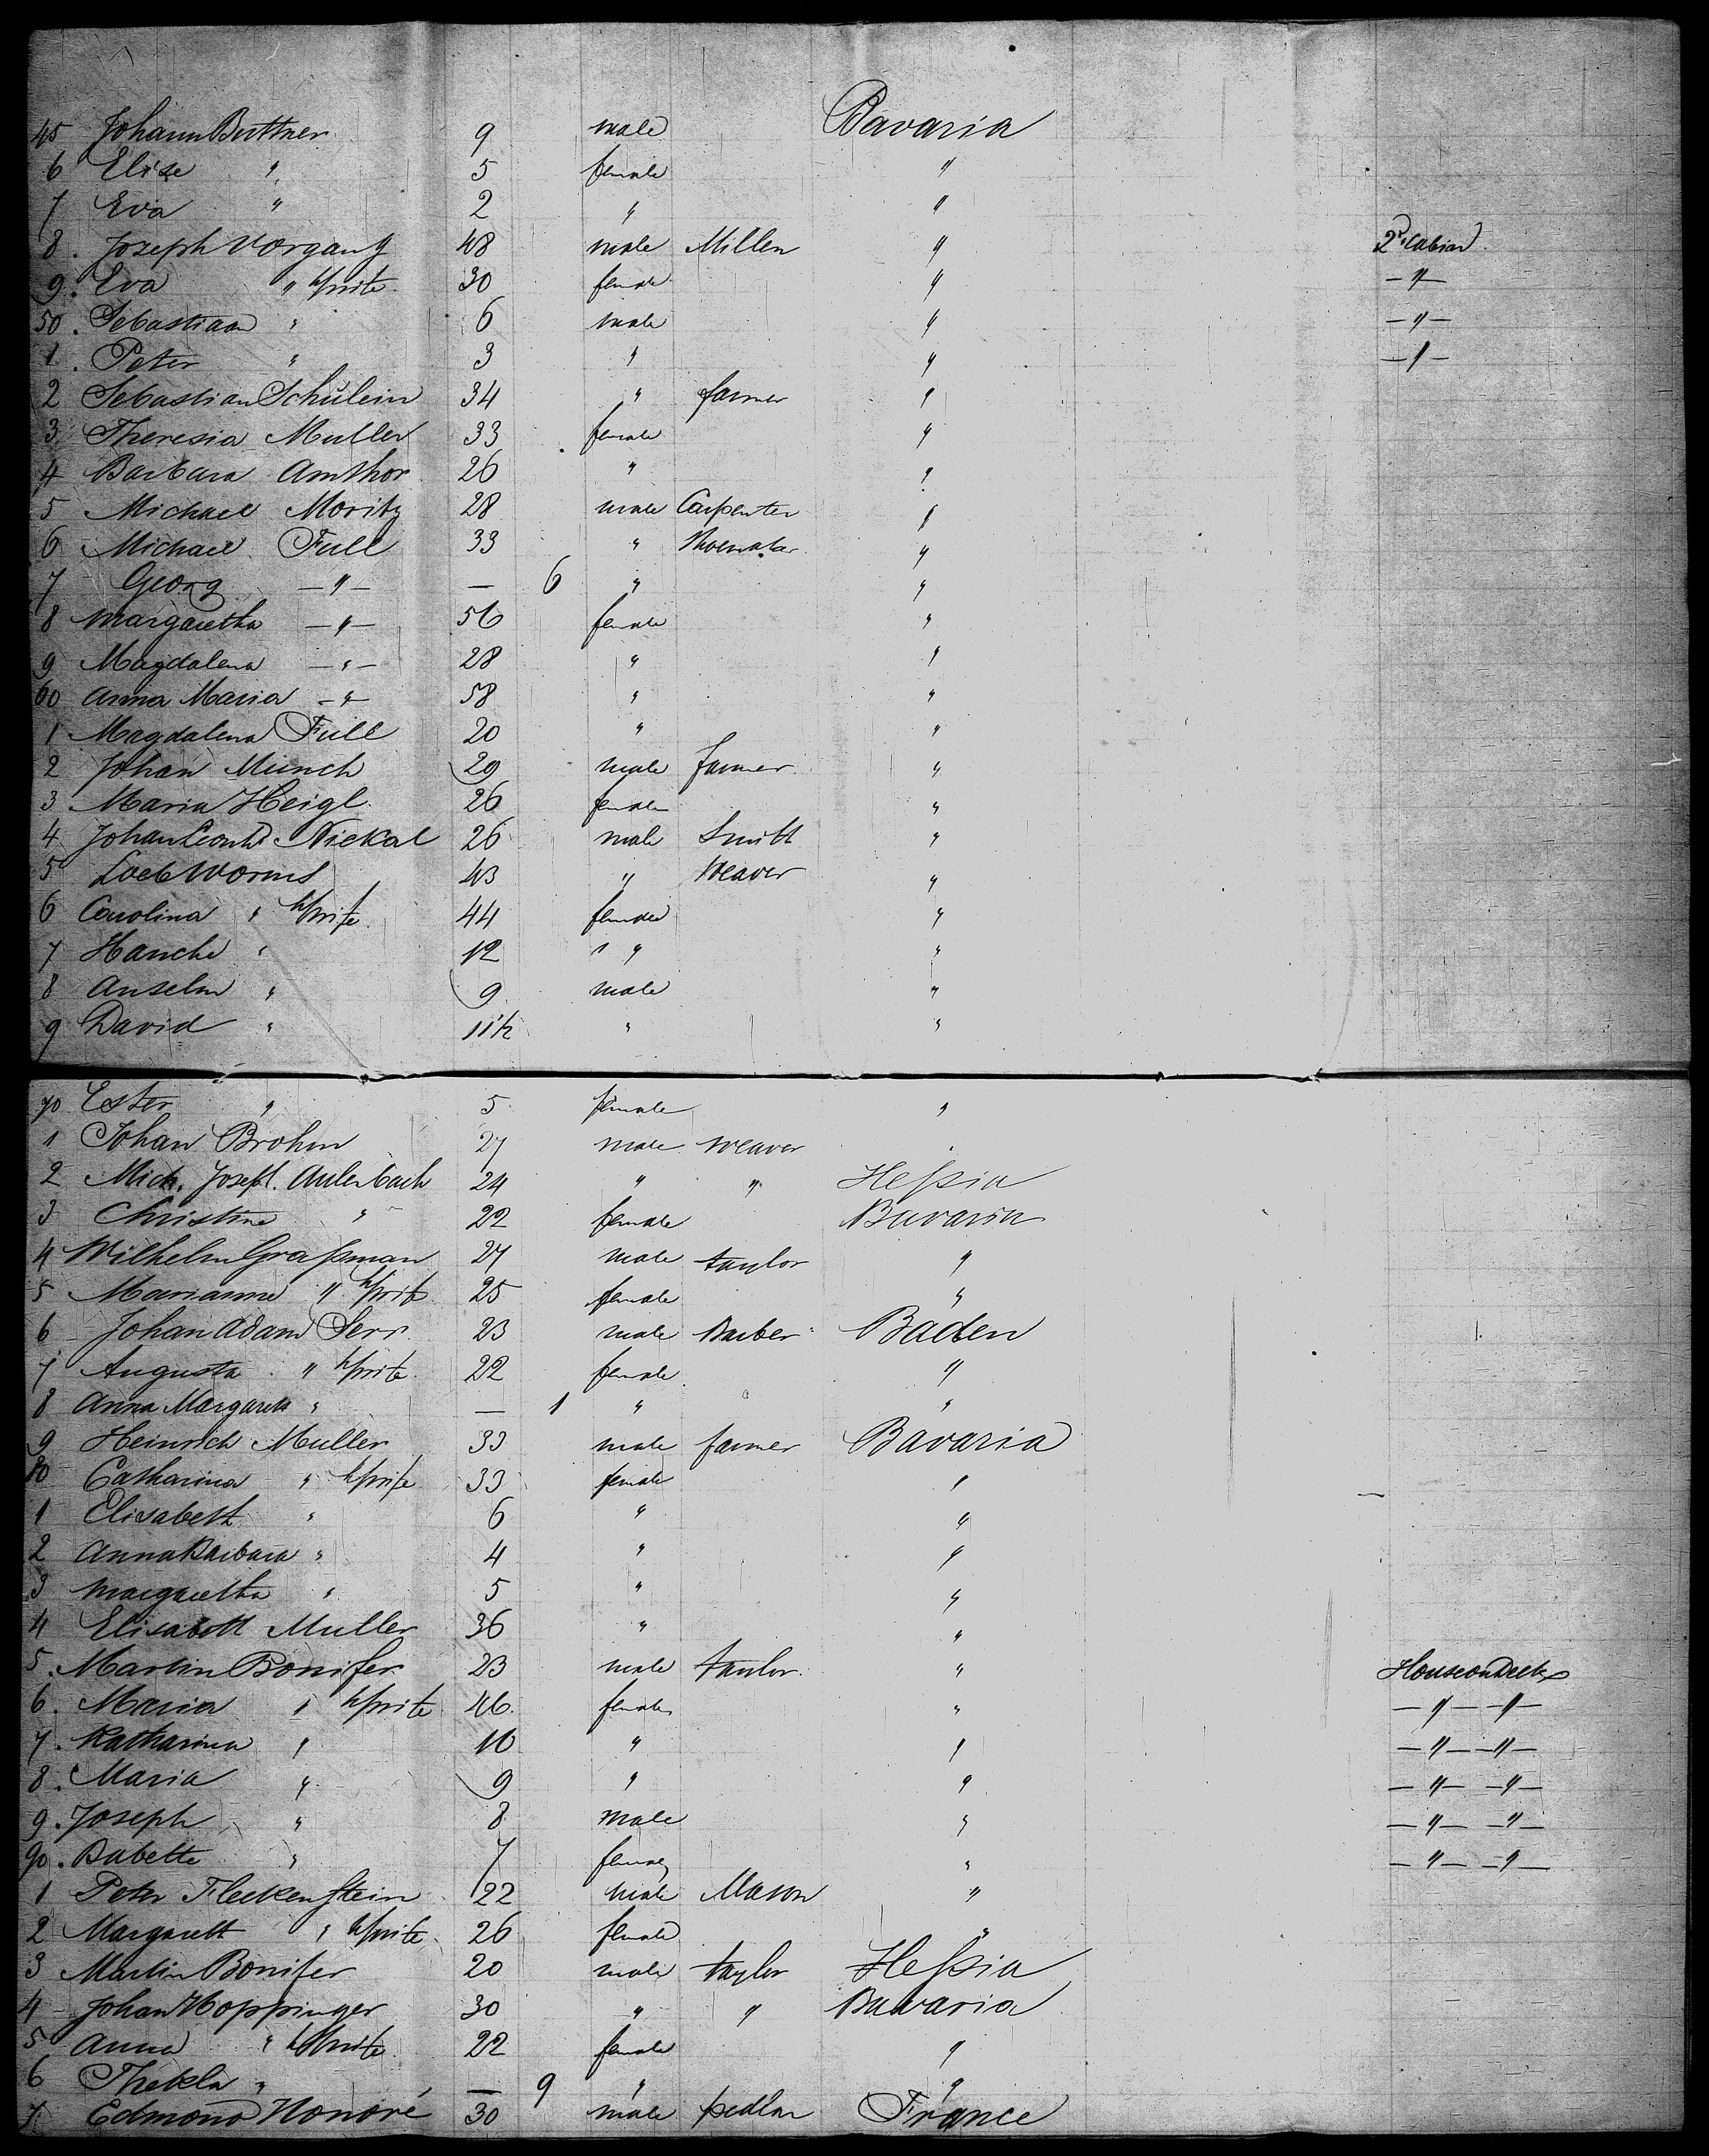 45 Johann Buttner 9 male Bavaria
6 Elise " 5 female "
7 Eva " 2 " "
8. Joseph Vorgang 48 male Miller " 2d. Cabin
9. Eva " h/wife 30 female " —"—
50. Sebastian " 6 male " —"—
1. Peter " 3 " " —"—
2 Sebastian Schülein 34 " farmer "
3. Theresia Muller 33 female "
4 Barbara Amthor 26 " "
5 Michael Moritz 28 male Carpenter "
6 Michael Full 33 " "
7 Georg —"— — 6 " "
8 Margaretha —"— 56 female "
9 Magdalena —"— 28 " "
60 Anna Maria —"— 58 " "
1 Magdalena Full 20 " "
2 Johan Münch 29 male farmer "
3 Maria Heigl. 26 female "
4 Johan Nickal 26 male Smith "
5 Loeb Worms 43 " Weaver "
6 Carolina " h/wife 44 female "
7 Hanche " 12 " "
8 Anselm " 9 male "
9 David " 11½ " "
70 Ester " 5 female "
1 Johan Brohm 27 male weaver "
2 Mich. Joseph. Aulenbach 24 " " Heßia
3 Christine " 22 female Bavaria
4 Wilhelm Graßman 27 male taylor "
5 Marianne " h/wife 25 female "
6 Johan Adam Serr 23 male Barber Baden
7 Augusta " h/wife 22 female "
8 Anna Margareth " — 1 " "
9 Heinrich Muller 33 male farmer Bavaria
80 Catharina " h/wife 33 female "
1 Elisabeth " 6 " "
2 Anna Barbara " 4 " "
3 Margaretha " 5 " "
4 Elisabeth Muller 36 " "
5. Martin Bonifer 23 male taylor. " House on Deck
6. Maria " h/wife 46 female " —"— —"—
7. Katharina " 10 " " —"— —"—
8. Maria " 9 " " —"— —"—
9. Joseph " 8 male " —"— —"—
90. Babette " 7 female " —"— —"—
1 Peter Fleckenstein 22 male Mason "
2 Margareth " h/wife 26 female "
3 Martin Bonifer 20 male taylor Heßia
4 Johan Hoppinger 30 " " Bavaria
5 Anna " h/wife 22 female "
6 Thekla " — 9 " "
7. Edmond Honoré 30 male pedlar France